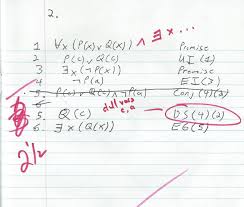 2.
1 ∀x (P(x) ∨ Q(x)) ∧ ∃x ... Premise
2 P(c) ∨ Q(c) UI (1)
3 ∃x (¬P(x)) Premise
4 ¬P(a) EI (3)
5. P(c) ∨ Q(c) ∧ ¬P(a) Conj (4)(2)
6
diff vars
c, a
5. Q(c) DS (4)(2)
6. ∃x (Q(x)) EG (5)
2 1/2